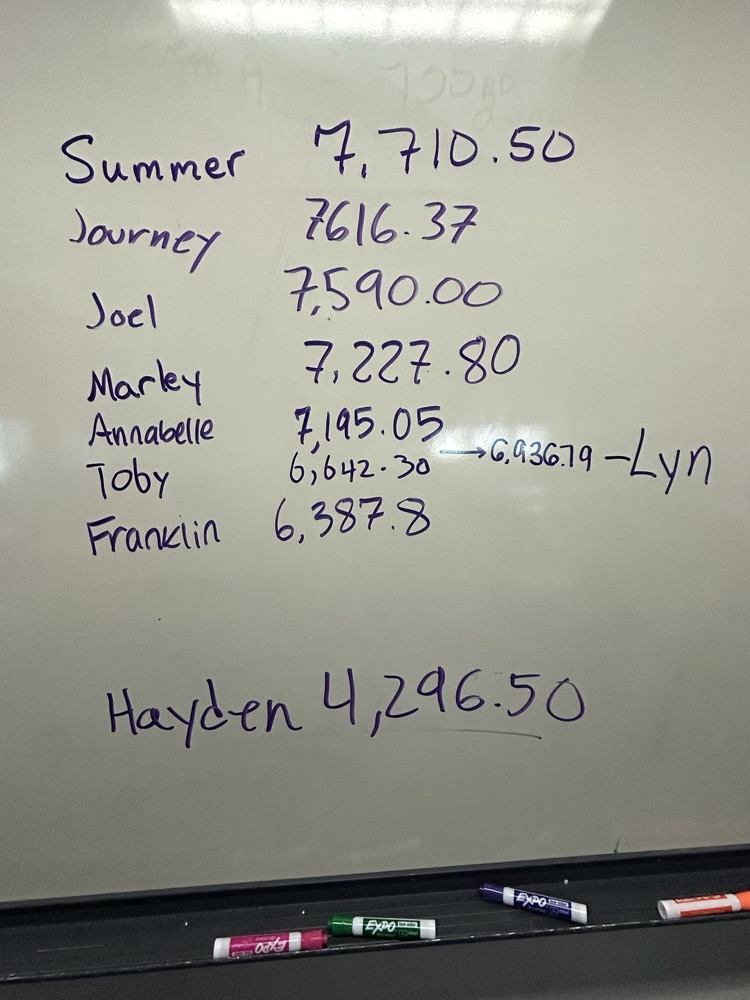 Summer 7,710.50
Journey 7616.37
Joel 7,590.00
Marley 7,227.80
Annabelle 7,195.05
Toby 6,642.30 → 6,936.79 - Lyn
Franklin 6,387.8
Hayden 4,296.50
EXPO
EXPO
EXPO